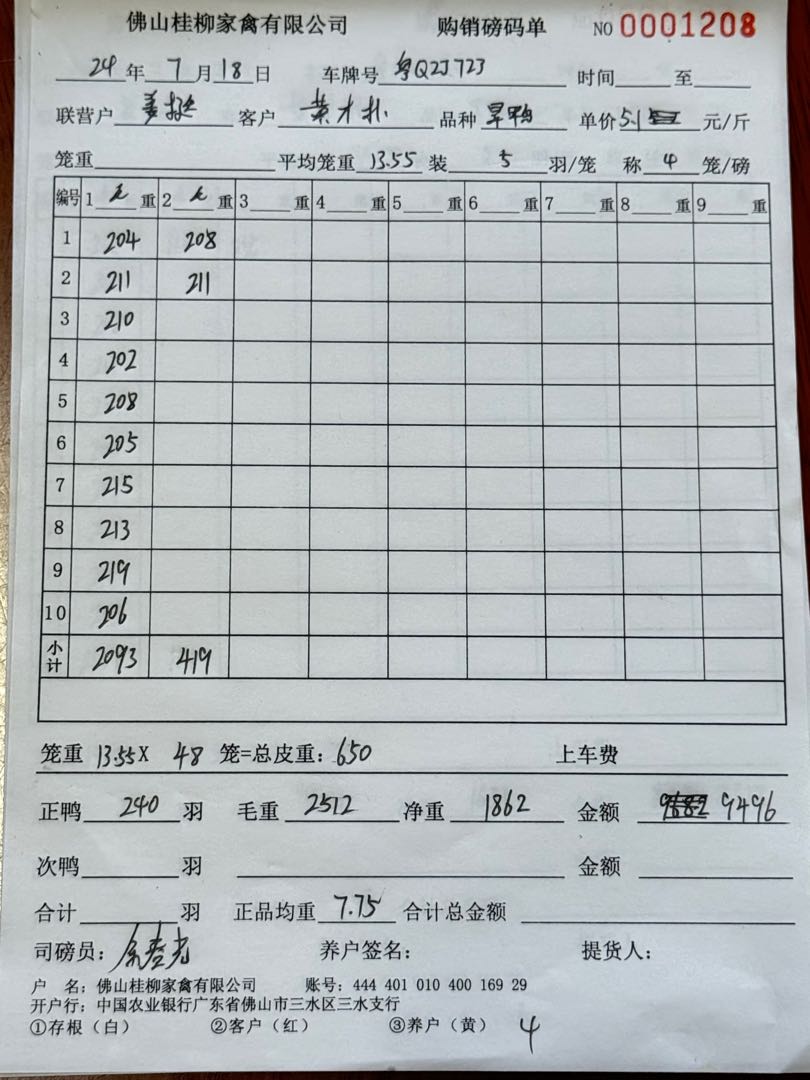 佛山桂柳家禽有限公司 购销磅码单 NO 0001208
24 年 7 月 18 日 车牌号 粤Q2J723 时间 至
联营户 姜挺 客户 黄才 品种 旱鸭 单价 5.1 元/斤
笼重 平均笼重 13.55 装 5 羽/笼 称 4 笼/磅
编号 1 毛 重 2 毛 重 3 重 4 重 5 重 6 重 7 重 8 重 9 重
1 204 208
2 211 211
3 210
4 202
5 208
6 205
7 215
8 213
9 219
10 206
小计 2093 419
笼重 13.55X 48 笼=总皮重: 650 上车费
正鸭 240 羽 毛重 2512 净重 1862 金额 9496
次鸭 羽 金额
合计 羽 正品均重 7.75 合计总金额
司磅员: 养户签名: 提货人:
户 名: 佛山桂柳家禽有限公司 账号: 444 401 010 400 169 29
开户行: 中国农业银行广东省佛山市三水区三水支行
①存根(白) ②客户(红) ③养户(黄) 4